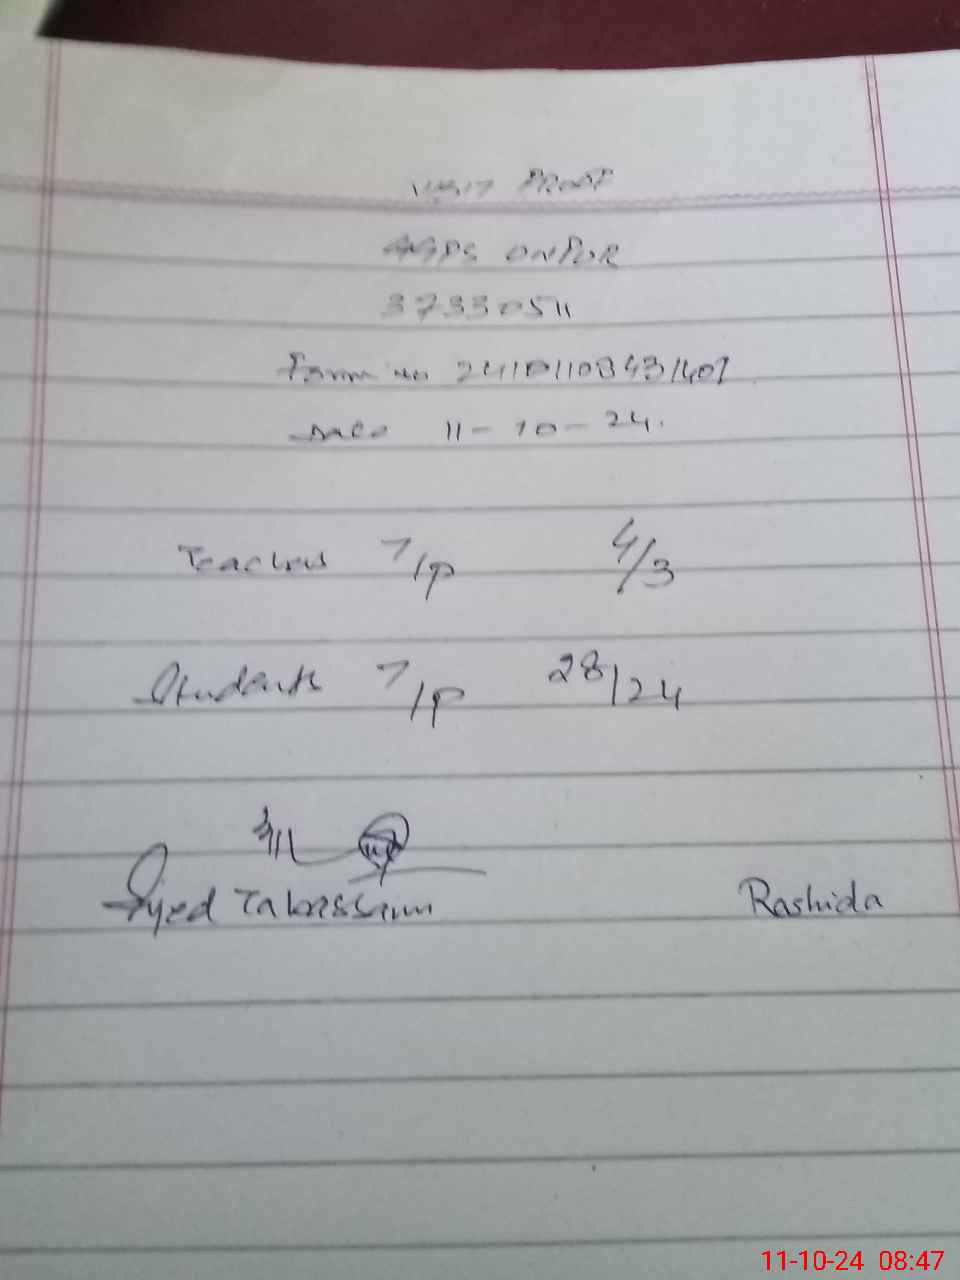 VISIT PROOF
GGPS ONPUR
37330511
Form no 24101108431407
Date 11-10-24.
Teachers T/P 4/3
Students T/P 28/24
Syed Tabassum Rashida
11-10-24 08:47